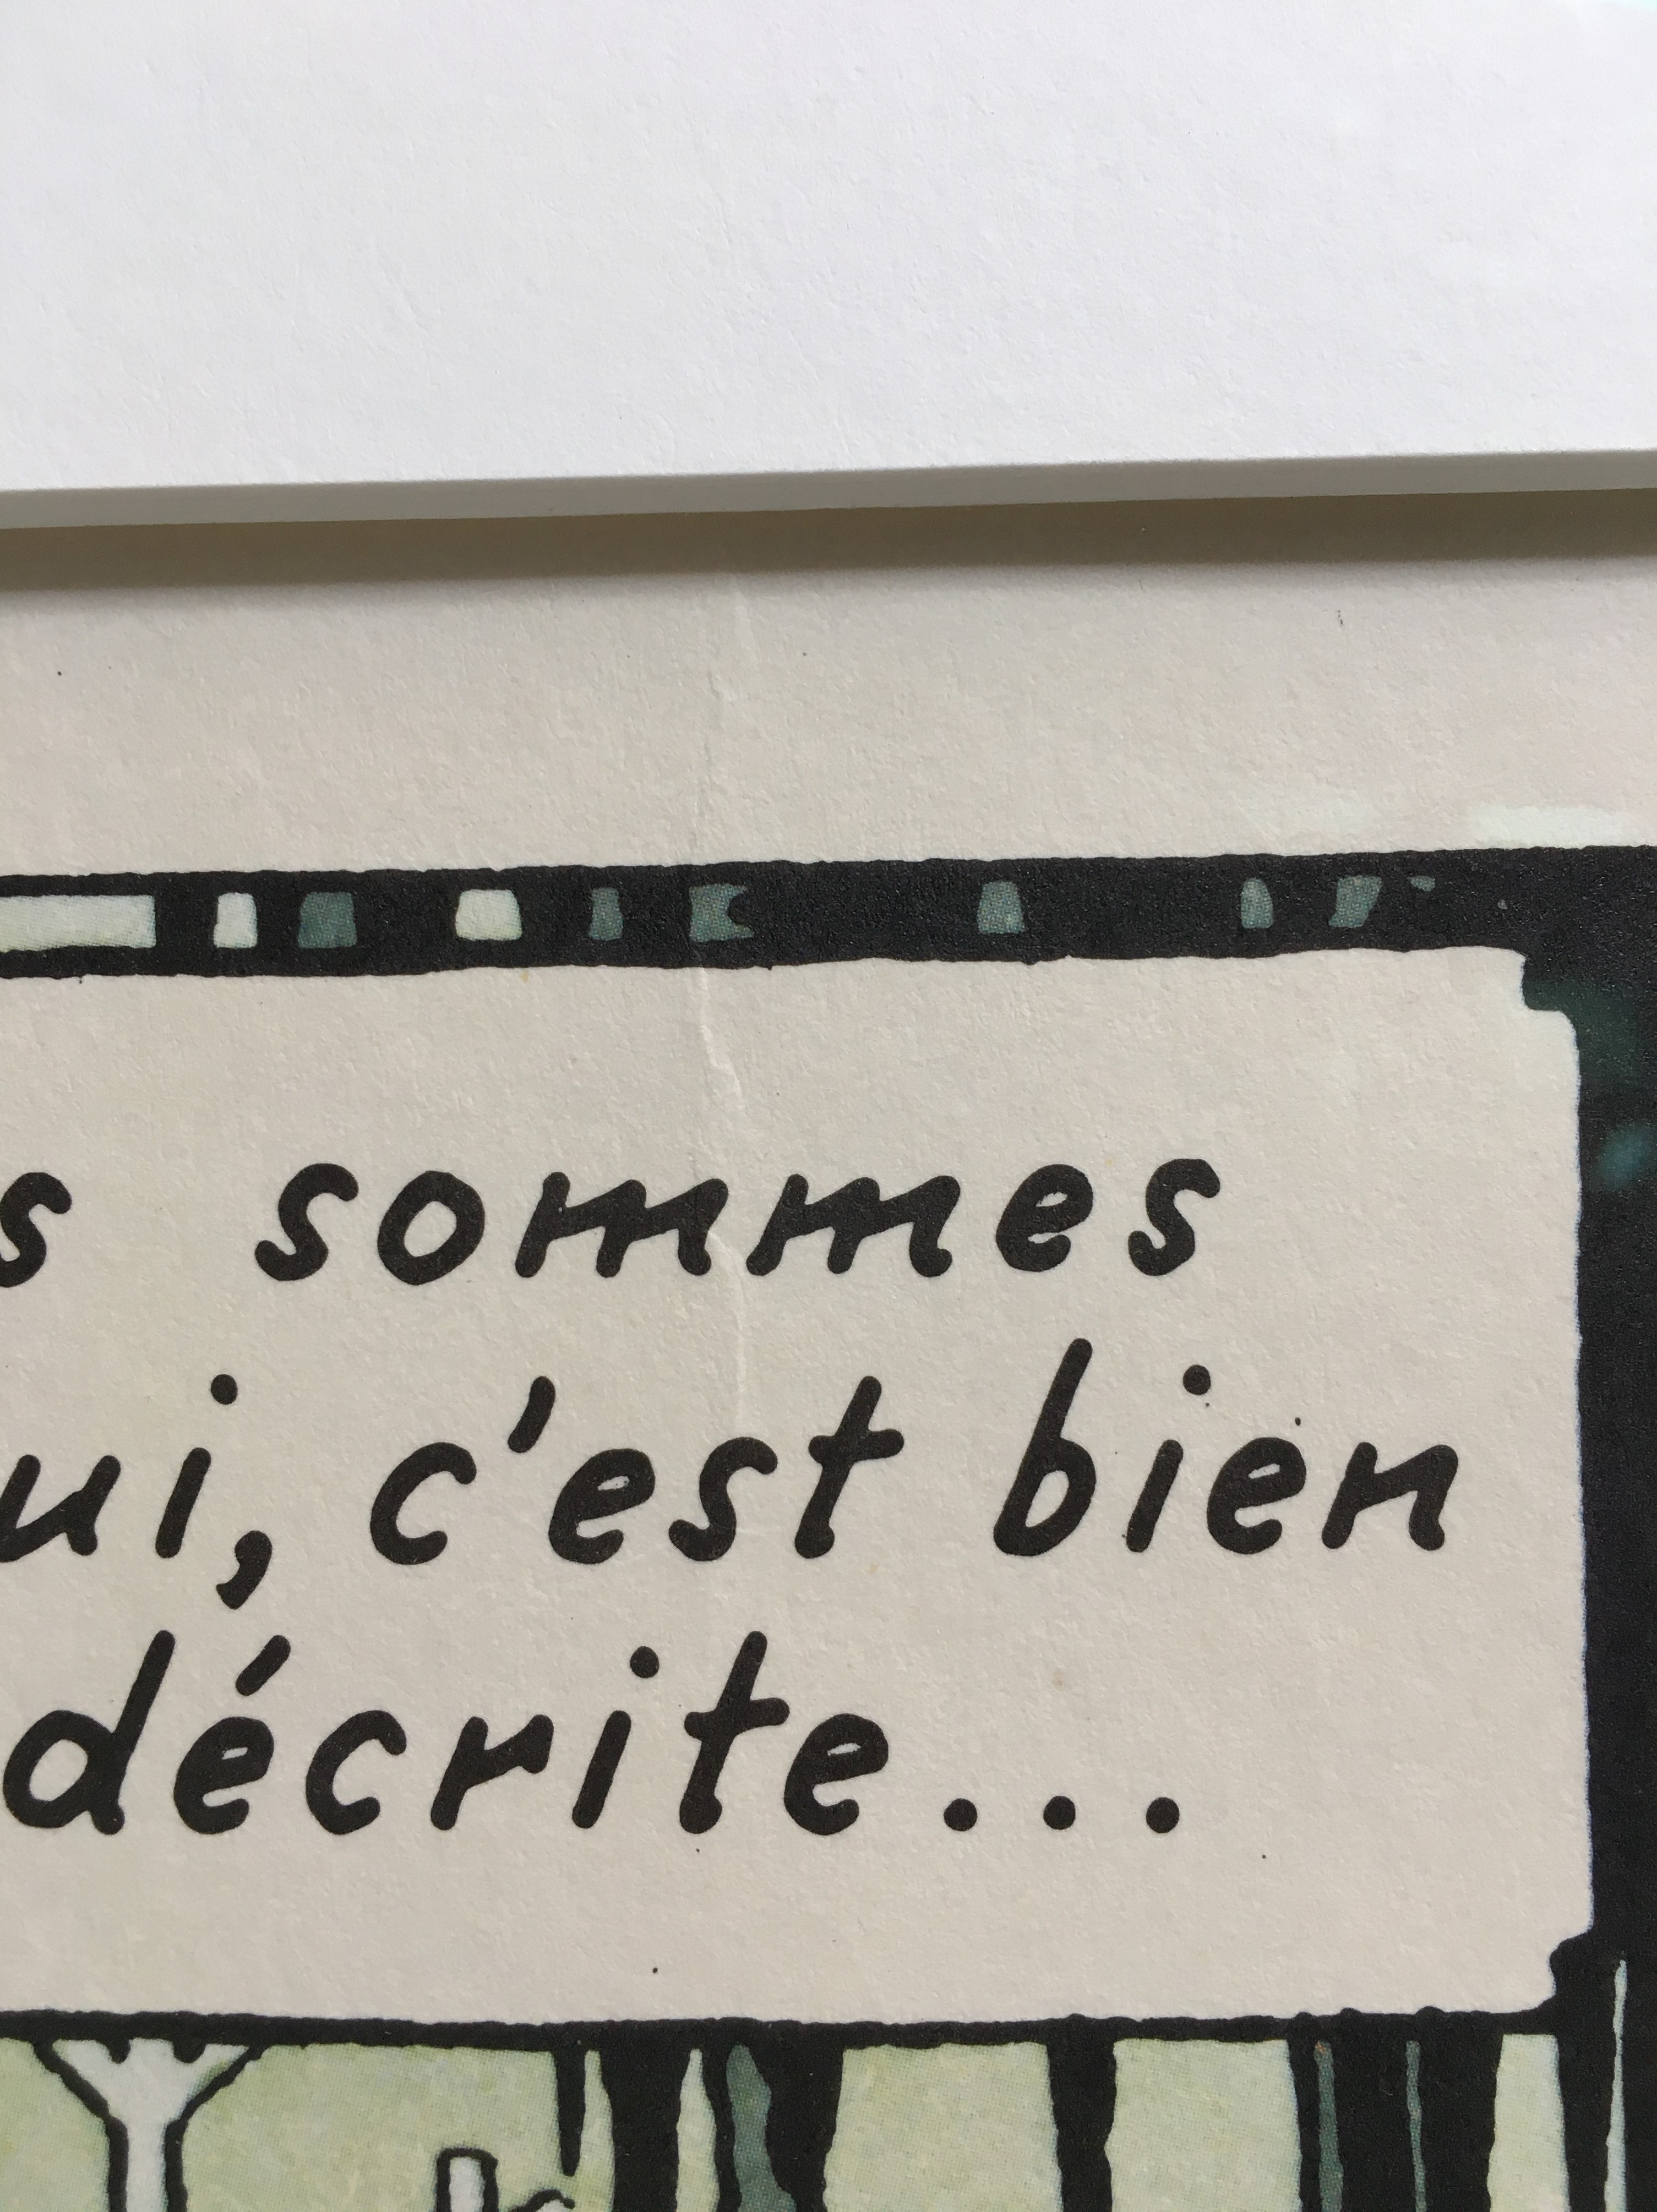 s sommes
ui, c'est bien
décrite...